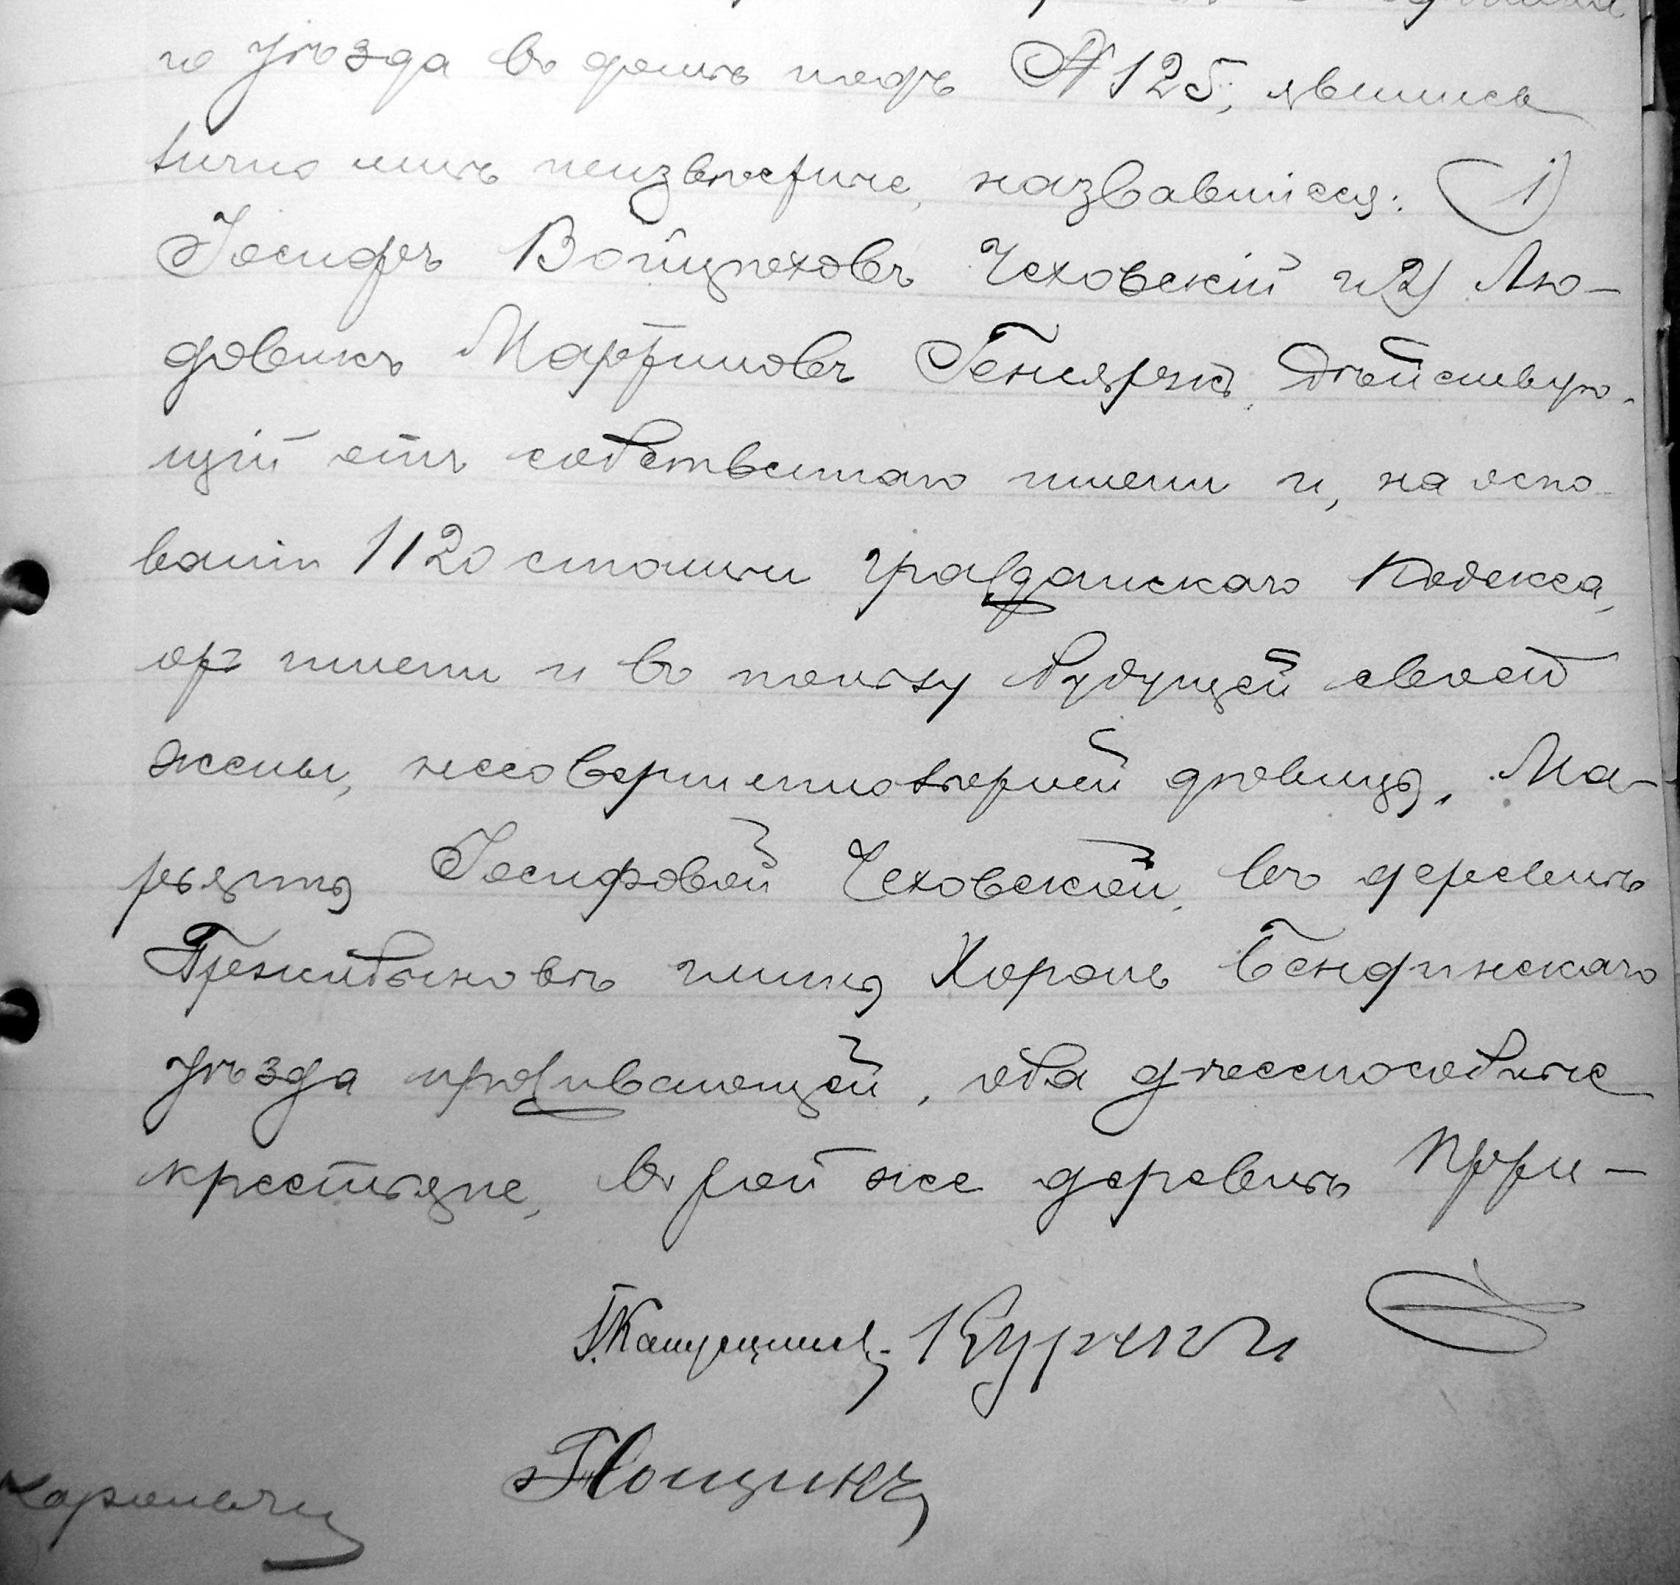 го уѣзда въ домѣ подъ № 125, явились
лично мнѣ неизвѣстные, назвавшіеся: 1)
Іосифъ Войцѣховъ Чеховскій и 2) Лю-
довикъ Мартиновъ Генсярекъ, дѣйствую-
щій отъ собственнаго имени и, на осно-
ваніи 1120 статьи Гражданскаго Кодекса,
отъ имени и въ пользу будущей своей
жены, несовершеннолѣтней дѣвицы, Ма-
рьянны Іосифовой Чеховской, въ деревнѣ
Гжибовѣ гмины Бендинскаго
уѣзда проживающей, оба дѣеспособные
крестьяне, въ той же деревнѣ При-